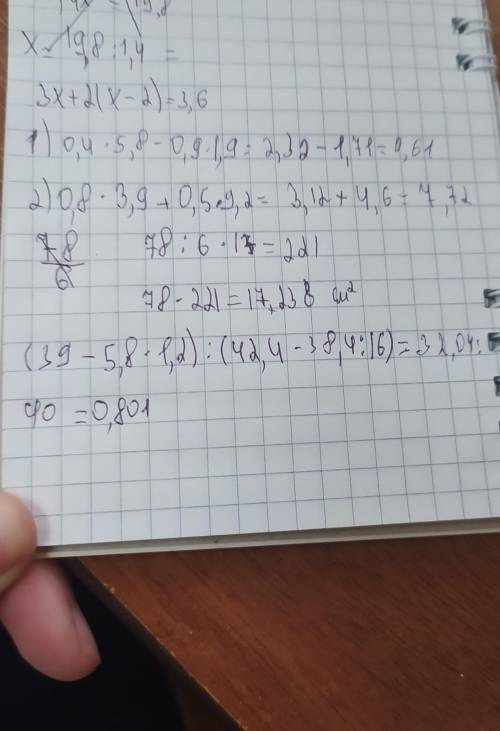 x = 19,8 : 1,4 =
3x+2(x-2)=3,6
1) 0,4 · 5,8 - 0,9 · 1,9 = 2,32 - 1,71 = 0,61
2) 0,8 · 3,9 + 0,5 · 9,2 = 3,12 + 4,6 = 7,72
78/6 78 : 6 · 17 = 221
78 · 221 = 17,238 см²
(39 - 5,8 · 1,2) : (42,4 - 38,4 : 16) = 32,04 :
40 = 0,801